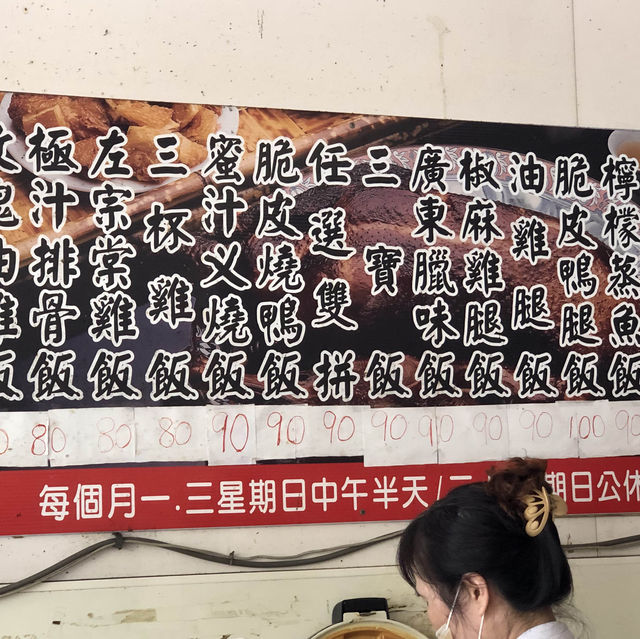 檸檬蒸魚飯
90
脆皮鴨腿飯
100
油雞腿飯
90
椒麻雞腿飯
90
廣東臘味飯
90
三寶飯
90
任選雙拼
90
脆皮燒鴨飯
90
蜜汁义燒飯
90
三杯雞飯
80
左宗棠雞飯
80
極汁排骨飯
80
每個月一.三星期日中午半天/二 期日公休